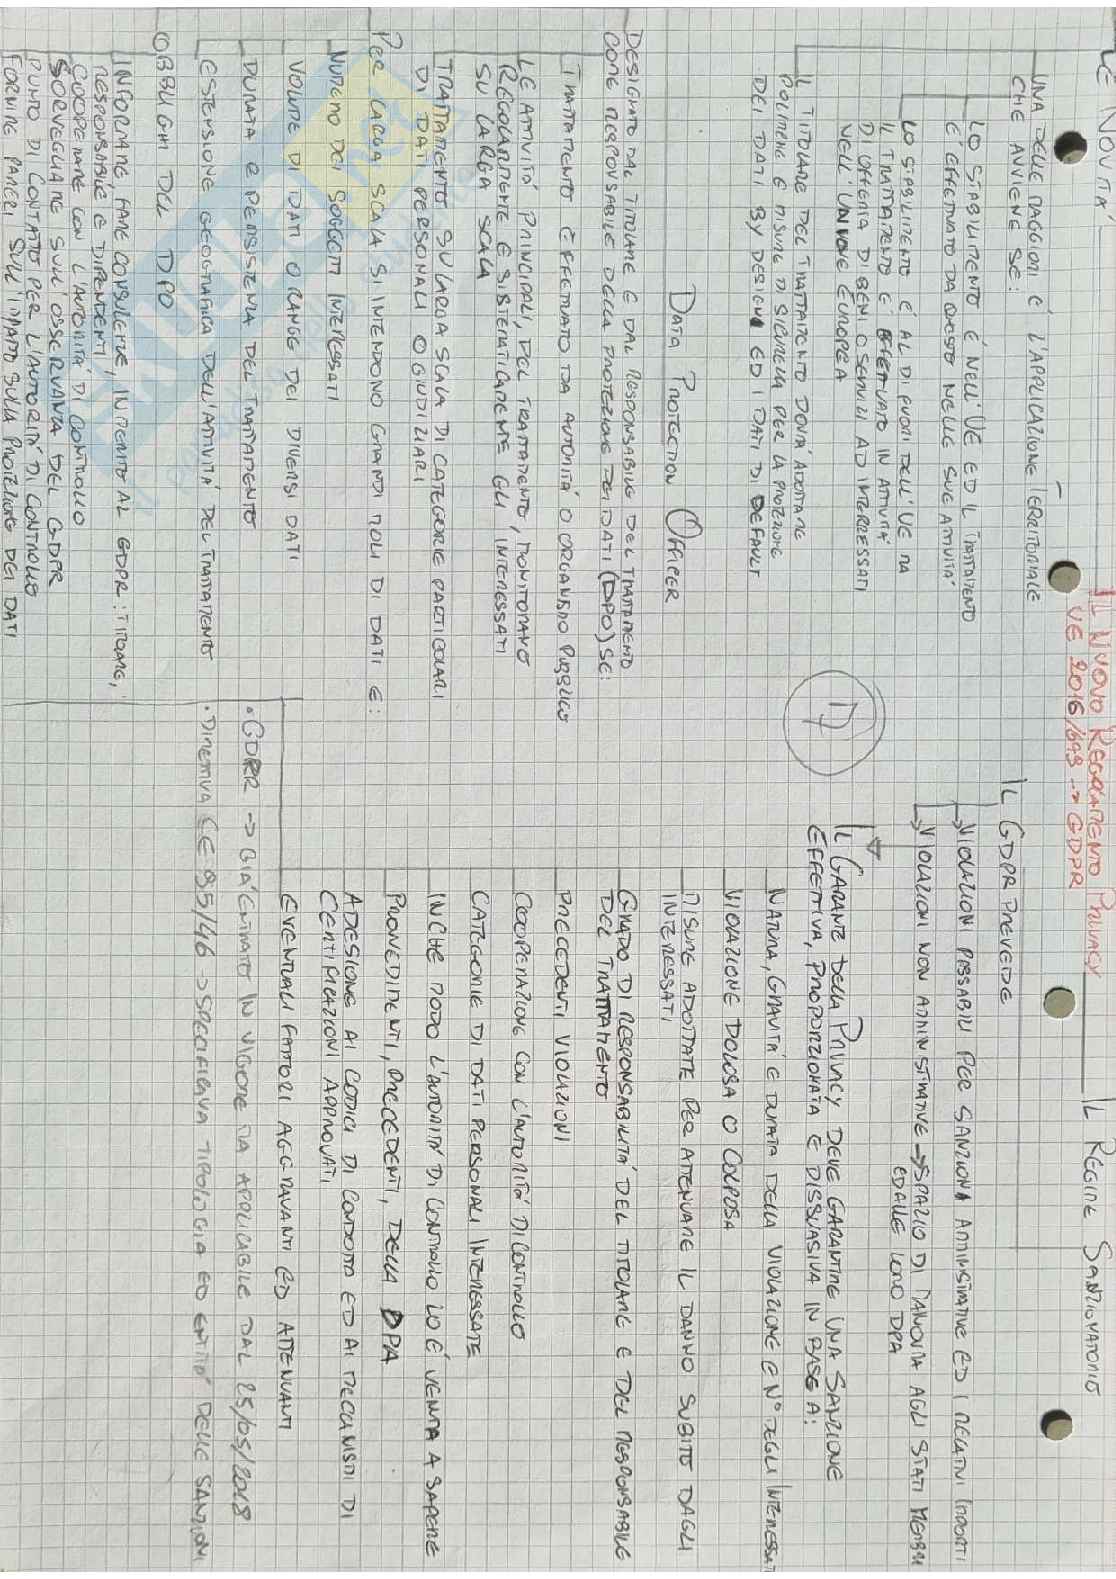 IL NUOVO REGOLAMENTO PRIVACY
UE 2016/649 -> GDPR
LE NOVITÀ
UNA DELLE MAGGIORI È L'APPLICAZIONE TERRITORIALE
CHE AVVIENE SE:
LO STABILIMENTO È NELL'UE ED IL TRATTAMENTO
È EFFETTUATO DA QUESTO NELLE SUE ATTIVITÀ
LO STABILIMENTO È AL DI FUORI DELL'UE MA
IL TRATTAMENTO È EFFETTUATO IN ATTIVITÀ
DI OFFERTA DI BENI O SERVIZI AD INTERESSATI
NELL'UNIONE EUROPEA
IL TITOLARE DEL TRATTAMENTO DOVRÀ ADOTTARE
POLITICHE E MISURE DI SICUREZZA PER LA PROTEZIONE
DEI DATI BY DESIGN ED I DATI DI DEFAULT
DATA PROTECTION OFFICER
DESIGNATO DAL TITOLARE E DAL RESPONSABILE DEL TRATTAMENTO
COME RESPONSABILE DELLA PROTEZIONE DEI DATI (DPO) SE:
TRATTAMENTO È EFFETTUATO DA AUTORITÀ O ORGANISMO PUBBLICO
LE ATTIVITÀ PRINCIPALI, DEL TRATTAMENTO, MONITORANO
REGOLARMENTE E SISTEMATICAMENTE GLI INTERESSATI
SU LARGA SCALA
TRATTAMENTO SU LARGA SCALA DI CATEGORIE PARTICOLARI
DI DATI PERSONALI O GIUDIZIARI
PER LARGA SCALA SI INTENDONO GRANDI MOLI DI DATI E:
NUMERO DEI SOGGETTI INTERESSATI
VOLUME DI DATI O RANGE DEI DIVERSI DATI
DURATA E PERSISTENZA DEL TRATTAMENTO
ESTENSIONE GEOGRAFICA DELL'ATTIVITÀ DEL TRATTAMENTO
OBBLIGHI DEL DPO
INFORMARE, FARE CONSULENZE, IN MERITO AL GDPR: TITOLARE,
RESPONSABILE E DIPENDENTI
COOPERARE CON L'AUTORITÀ DI CONTROLLO
SORVEGLIARE SULL'OSSERVANZA DEL GDPR
PUNTO DI CONTATTO PER L'AUTORITÀ DI CONTROLLO
FORNIRE PARERI SULL'IMPATTO SULLA PROTEZIONE DEI DATI
IL REGIME SANZIONATORIO
IL GDPR PREVEDE
VIOLAZIONI PASSABILI PER SANZIONI AMMINISTRATIVE ED I RELATIVI IMPORTI
VIOLAZIONI NON AMMINISTRATIVE -> SPAZIO DI MANOVRA AGLI STATI MEMBRI
ED ALLE LORO DPA
IL GARANTE DELLA PRIVACY DEVE GARANTIRE UNA SANZIONE
EFFETTIVA, PROPORZIONATA E DISSUASIVA IN BASE A:
NATURA, GRAVITÀ E DURATA DELLA VIOLAZIONE E N° DEGLI INTERESSATI
VIOLAZIONE DOLOSA O COLPOSA
MISURE ADOTTATE PER ATTENUARE IL DANNO SUBITO DAGLI
INTERESSATI
GRADO DI RESPONSABILITÀ DEL TITOLARE E DEL RESPONSABILE
DEL TRATTAMENTO
PRECEDENTI VIOLAZIONI
COOPERAZIONE CON L'AUTORITÀ DI CONTROLLO
CATEGORIE DI DATI PERSONALI INTERESSATE
IN CHE MODO L'AUTORITÀ DI CONTROLLO LO È VENUTA A SAPERE
PROVVEDIMENTI, PRECEDENTI, DELLA DPA
ADESIONE AI CODICI DI CONDOTTA ED AI MECCANISMI DI
CERTIFICAZIONI APPROVATI
EVENTUALI FATTORI AGGRAVANTI ED ATTENUANTI
• GDPR -> GIÀ ENTRATO IN VIGORE MA APPLICABILE DAL 25/05/2018
• DIRETTIVA CE 95/46 -> SPECIFICAVA TIPOLOGIA ED ENTITÀ DELLE SANZIONI